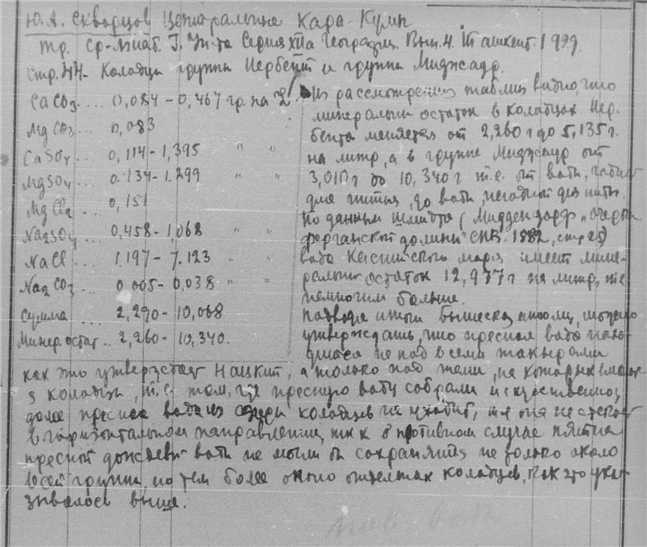 Ю.А. Скворцов Центральные Кара-Кумы
Тр. Ср-Азиат. Г. Ун-та Серия XIIa География. Вып. 4. Ташкент. 1929.
Стр. 44- Колодцы группа Иербент и группа Миджаур
CaCO3 .... 0,084 - 0,467 гр. на L
MgCO3 ... 0,083
CaSO4 .... 0,114 - 1,395 " "
MgSO4 ... 0.134 - 1.299 " "
MgCl2 ... 0,151
Na2SO4 ... 0,458 - 1,068 " "
NaCl ... 1.197 - 7.123 " "
Na2CO3 ... 0,005 - 0,038 " "
Сумма .... 2,290 - 10,068
Минер. остат... 2,260 - 10,340.
Из рассмотрения таблиц видно что
минеральн остаток в колодцах Иер-
бента меняется от 2,260 г до 5,135 г.
на литр, а в группе Миджаур от
3,010 г до 10,340 г т.е. от воды, годной
для питья, до воды, негодной для питья.
По данным Шмидта (Миддендорф „Очерки
ферганской долины" СПБ. 1882, стр.
вода Каспийского моря имеет мине-
ральный остаток 12,937 г на литр, т.е.
немногим больше.
Подводя итог вышесказанному, можно
утверждать, что пресная вода нахо-
дится не под всеми такырами
как это утверждает Нацкий, а только под теми, на которых имеют-
ся колодцы, т.е. там, где пресную воду собрали искусственно,
далее пресная вода из среды колодцев не уходит, т.е. она не стекает
в горизонтальном направлении, т.к. в противном случае пятна
пресной дождевой воды не могли бы сохраниться не только около
всей группы, но тем более около отдельных колодцев, как это ука-
зывалось выше.